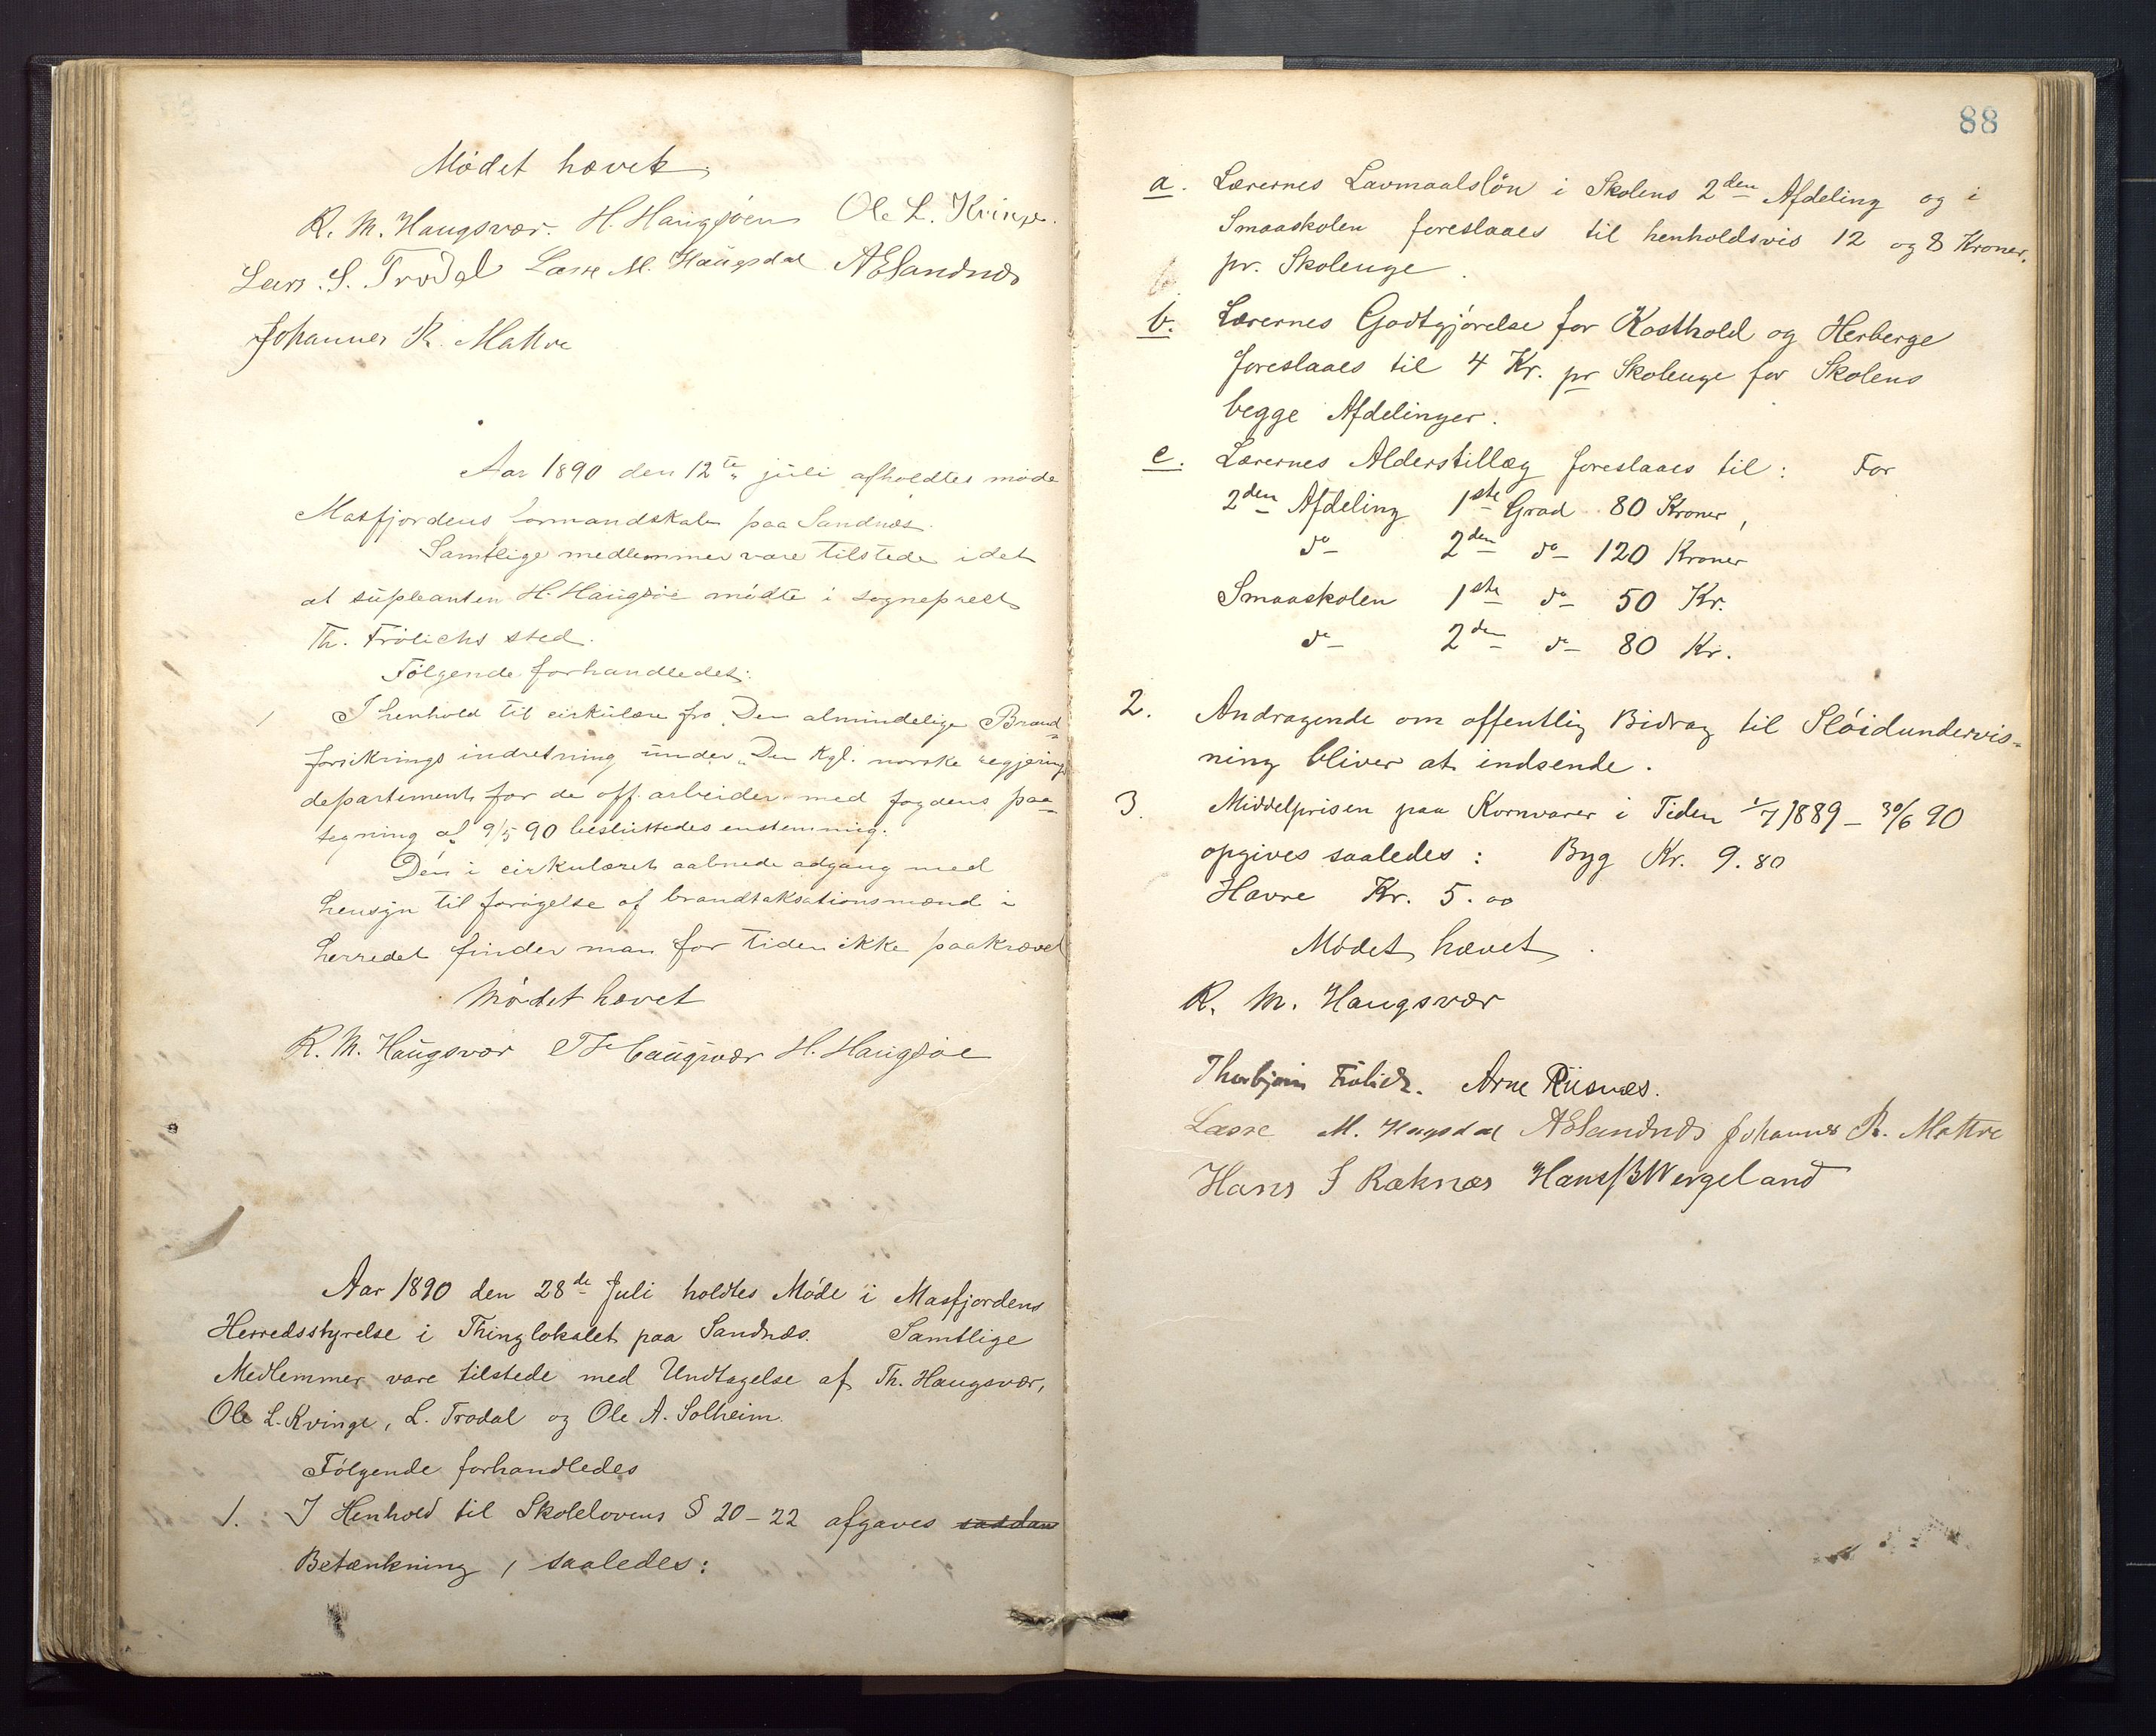 Mødet hævet.
R. M. Haugsvær. H. Haugsøen Ole L. Kvinge.
Lars. S. Trodal Lasse M. Haugsdal AESandnæs
Johannes R. Matre
Aar 1890 den 12te juli afholdtes møde
Masfjordens formandskab paa Sandnæs.
Samtlige medlemmer vare tilstede idet
at supleanten H. Haugsøe mødte i sogneprest
Th. Frölichs sted.
Følgende forhandledes:
1 I henhold til cirkulære fra „Den almindelige Brand-
forsikrings indretning under „Den Kgl. norske regjerings
departement for de off. arbeider med fogdens paa-
tegning af 9/5 90 besluttedes enstemmig.
Den i cirkulæret aabnede adgang med
hensyn til forøgelse af brandtaksationsmænd i
herredet finder man for tiden ikke paakrævet
Mødet hævet
R. M. Haugsvær Th Haugsvær H. Haugsøe
Aar 1890 den 28de Juli holdtes Møde i Masfjordens
Herredsstyrelse i Thinglokalet paa Sandnæs. Samtlige
Medlemmer vare tilstede med Undtagelse af Th. Haugsvær,
Ole L. Kvinge, L. Trodal og Ole A. Solheim.
Følgende forhandledes
1. I Henhold til Skolelovens § 20-22 afgaves saadan
Betænkning, saaledes:
88
a. Lærernes Lavmaalsløn i Skolens 2den Afdeling og i
Smaaskolen foreslaaes til henholdsvis 12 og 8 Kroner.
pr. Skoleuge.
b. Lærernes Godtgjørelse for Kosthold og Herberge
foreslaaes til 4 Kr. pr Skoleuge for Skolens
begge Afdelinger.
c. Lærernes Alderstillæg foreslaaes til: For
2den Afdeling 1ste Grad 80 Kroner,
do 2den do 120 Kroner
Smaaskolen 1ste do 50 Kr.
do 2den do 80 Kr.
2. Andragende om offentlig Bidrag til Sløidundervis-
ning bliver at indsende.
3. Middelprisen paa Kornvarer i Tiden 1/7 1889 - 30/6 90
opgives saaledes: Byg Kr. 9.80
Havre Kr. 5.00
Mødet hævet.
R. M. Haugsvær
Thorbjørn Frölich. Arne Riisnæs.
Lasse M. Hagsdal AESandnæs Johannes R. Matre
Hans S Ræknæs Hans B Wergeland